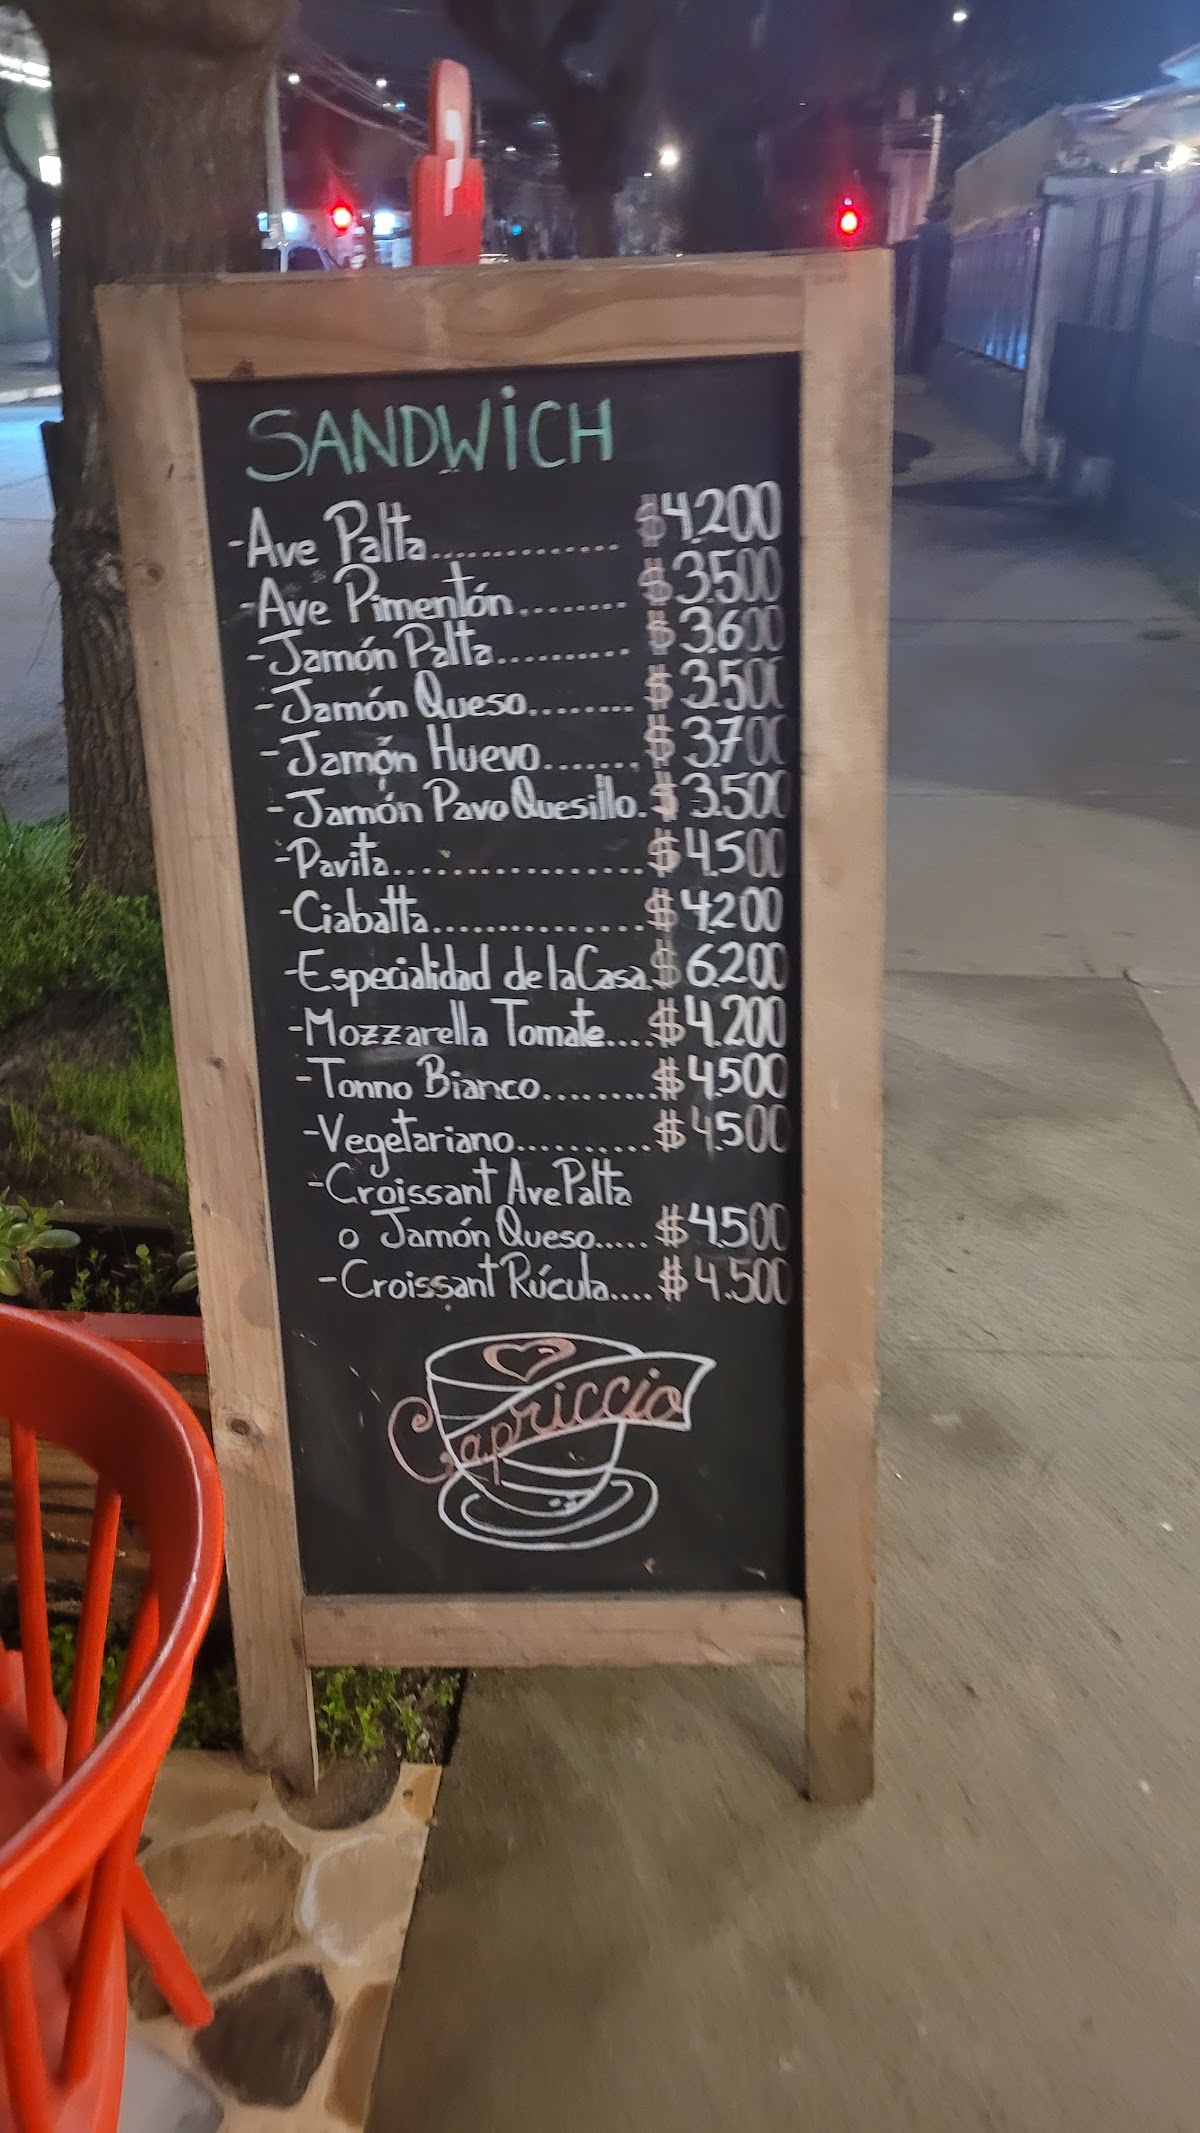 SANDWiCH
-Ave Palta.............. $4.200
-Ave Pimentón........ $3.500
-Jamón Palta.......... $3.600
-Jamón Queso........ $3.500
-Jamón Huevo....... $3.700
-Jamón Pavo Quesillo. $3.500
-Pavita.................. $4.500
-Ciabatta............... $4.200
-Especialidad de la Casa. $6.200
-Mozzarella Tomate.... $4.200
-Tonno Bianco......... $4.500
-Vegetariano.......... $4.500
-Croissant Ave Palta
o Jamón Queso..... $4.500
-Croissant Rúcula.... $4.500
Capriccio